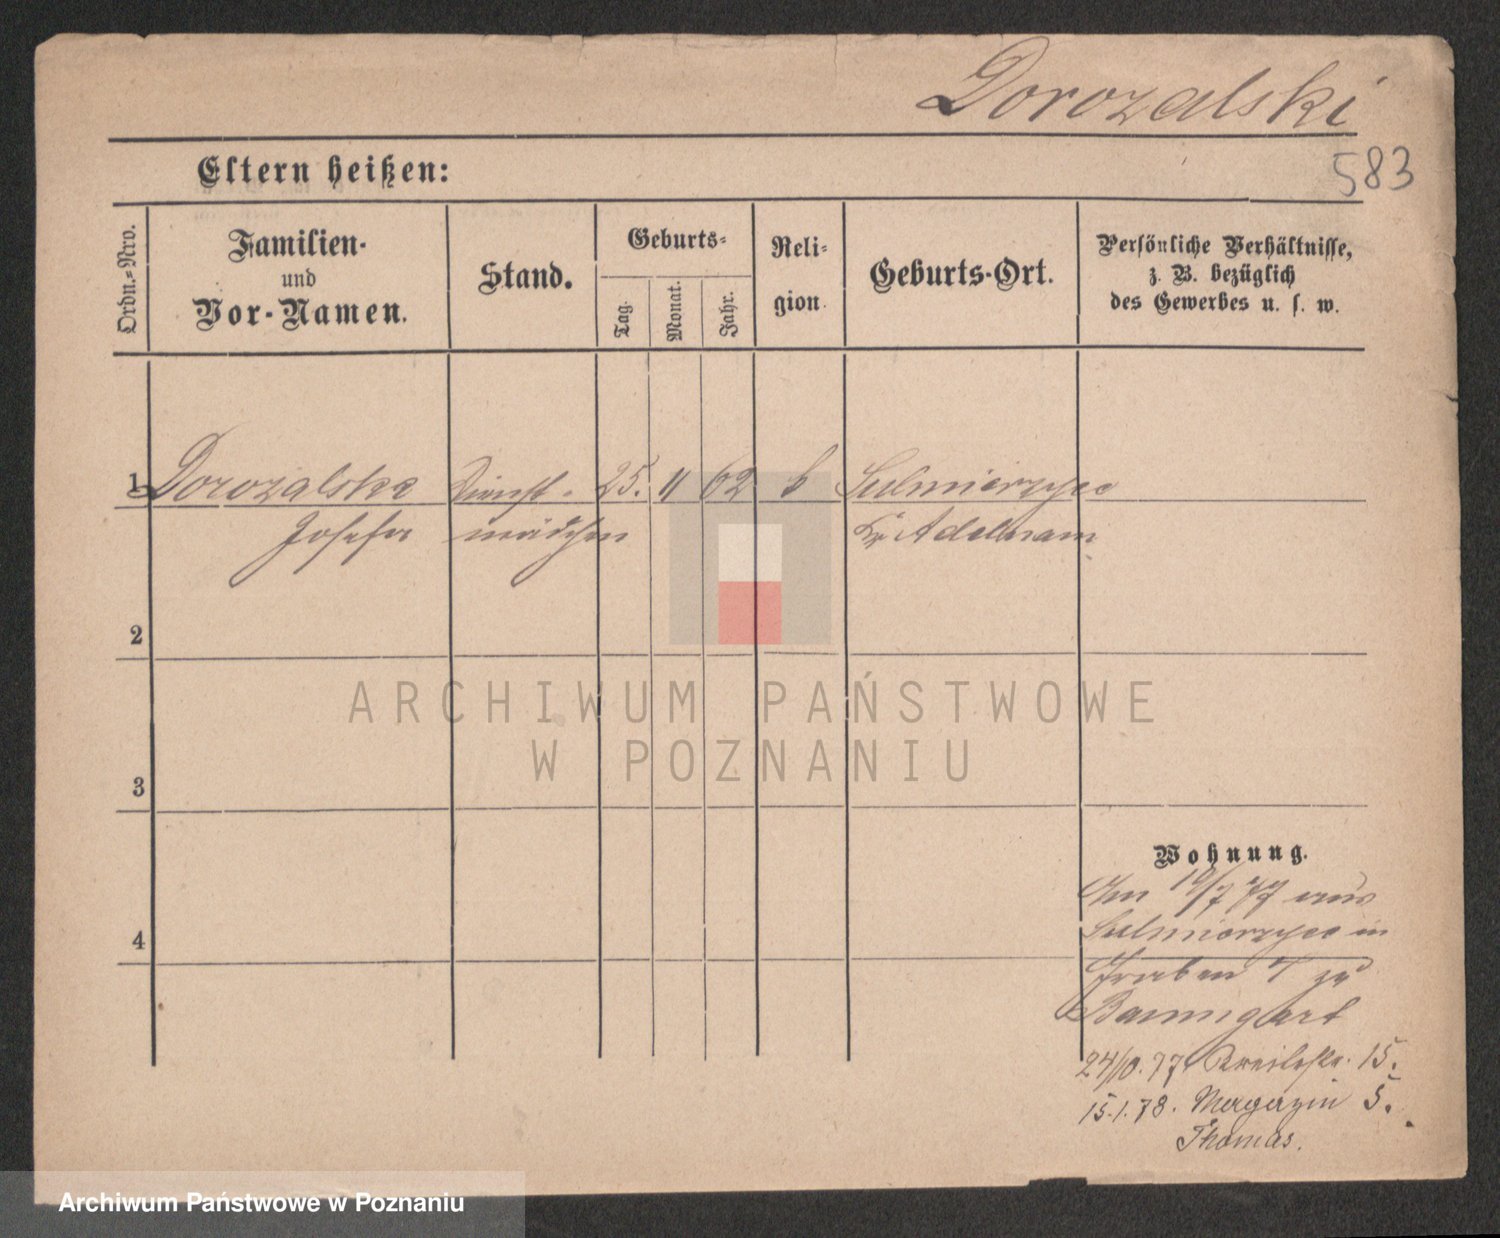 Dorozalski
583
Eltern heißen:
Ordn.-Nro.
Familien-
und
Vor-Namen.
Stand.
Geburts-
Tag.
Monat.
Jahr.
Reli-
gion.
Geburts-Ort.
Persönliche Verhältnisse,
z. B. bezüglich
des Gewerbes u. s. w.
1 Dorozalska Dienst- 25. 11 62 k Sulmierzyce
Josefa mädchen Kr Adelnau
2
3
4
Wohnung.
Am 10/7 77 aus
Sulmierzyce in
Graben 7 zu
Baumgart
24/10. 77. 15.
15.1.78. Magazin 5.
Thomas.
ARCHIWUM PAŃSTWOWE
W POZNANIU
Archiwum Państwowe w Poznaniu